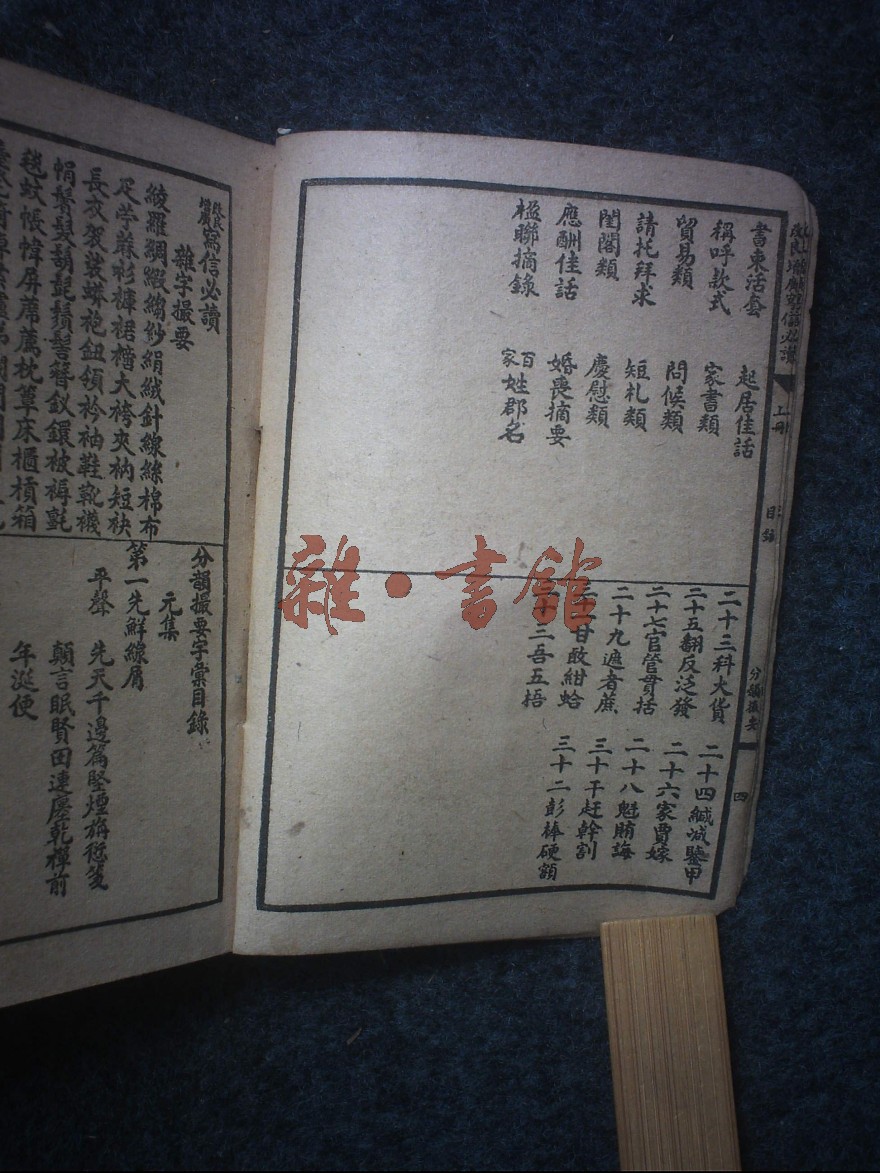 書柬活套
起居佳話
稱呼款式
家書類
貿易類
問候類
請托拜求
短札類
閨閣類
慶慰類
應酬佳話
婚喪摘要
楹聯摘錄
百家姓郡名
上冊
目錄
二十三科大貨
二十四緘減鑒甲
二十五翻反泛發
二十六家賈嫁
二十七官管貫括
二十八魁賄誨
二十九遮者蔗
三十干赶幹割
甘敢紺蛤
三十二彭棒硬額
吾五悟
分韻撮要
四
寫信必讀
雜字撮要
綾羅綢緞縐紗絹絨針線絲棉布
衫褲裙大袴夾衲短袂
長衣袈裟蟒袍鈕領衿袖鞋靴襪
髮鬍髭鬚髻簪釵鐶被褥氈
毯蚊帳幃屏蓆薦枕簟床櫃槓箱
分韻撮要字彙目錄
元集
第一先鮮線屑
平聲
先天千邊篇堅煙
顛言眠賢田連廛乾禪前
年涎便
雜·書館